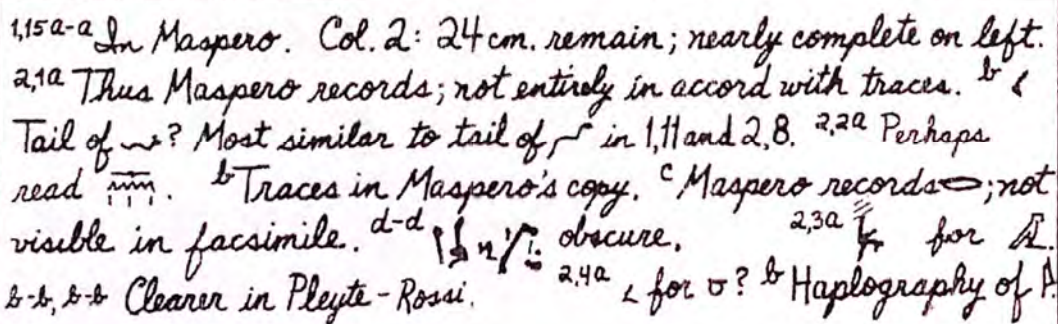 1,15a-a In Maspero. Col. 2: 24 cm. remain; nearly complete on left.
2,1a Thus Maspero records; not entirely in accord with traces. b
Tail of ? Most similar to tail of in 1,11 and 2,8. 2,2a Perhaps
read . b Traces in Maspero's copy. c Maspero records ; not
visible in facsimile. d-d obscure. 2,3a for .
b-b, b-b Clearer in Pleyte-Rossi. 2,4a for ? b Haplography of